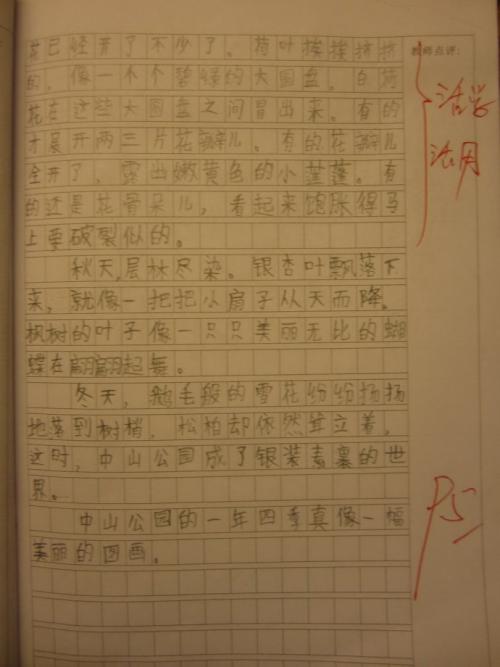 花已经开了不少了。荷叶挨挨挤挤
的，像一个个碧绿的大圆盘。白荷
花在这些大圆盘之间冒出来。有的
才展开两三片花瓣儿。有的花瓣儿
全开了，露出嫩黄色的小莲蓬。有
的还是花骨朵儿，看起来饱胀得马
上要破裂似的。
秋天，层林尽染。银杏叶飘落下
来，就像一把把小扇子从天而降。
枫树的叶子像一只只美丽无比的蝴
蝶在翩翩起舞。
冬天，鹅毛般的雪花纷纷扬扬
地落到树梢，松柏却依然耸立着，
这时，中山公园成了银装素裹的世
界。
中山公园的一年四季真像一幅
美丽的图画。
教师点评：
活学
活用